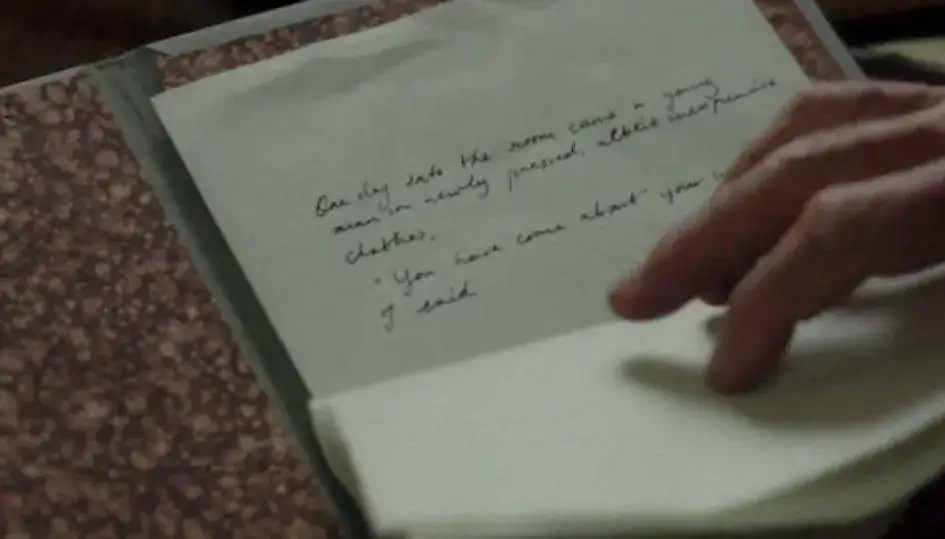 One day into the room came a young
man in newly pressed, albeit inexpensive
clothes.
"You have come about your
I said